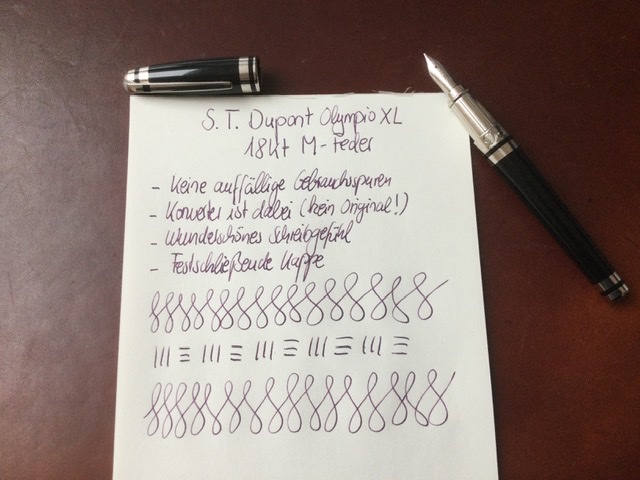 S. T. Dupont Olympio XL
18kt M-Feder
- Keine auffällige Gebrauchsspuren
- Konverter ist dabei (kein Original!)
- Wunderschönes Schreibgefühl
- Festschließende Kappe